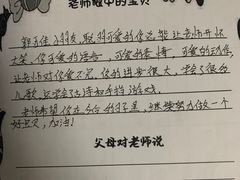 老师眼中的宝贝
郭子佳小朋友,聪明可爱的你总能让老师开怀
大笑,你可爱的语言,可爱的表情,可爱的动作,
让老师对你爱不完,你的进步很大,学会了很多
儿歌,还学会了古诗和手指游戏,
老师希望你在今后的日子里,继续努力做一个
好宝贝,加油!
父母对老师说